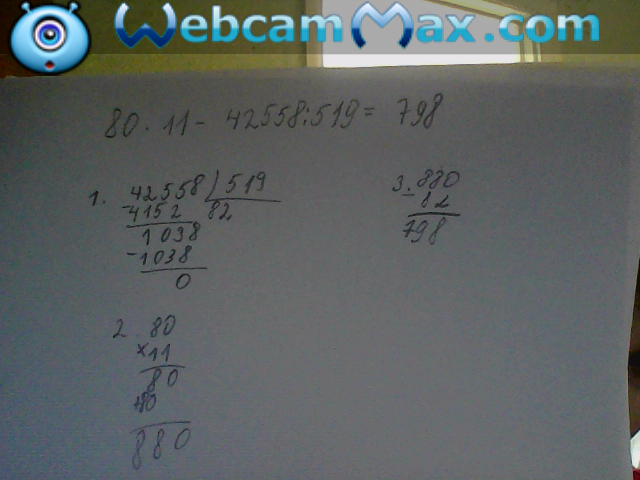 WebcamMax.com
80 · 11 - 42558 : 519 = 798
1. 42558 ) 519
- 4152 82
1038
- 1038
0
2 80
x 11
80
+80
880
3. 880
- 82
798